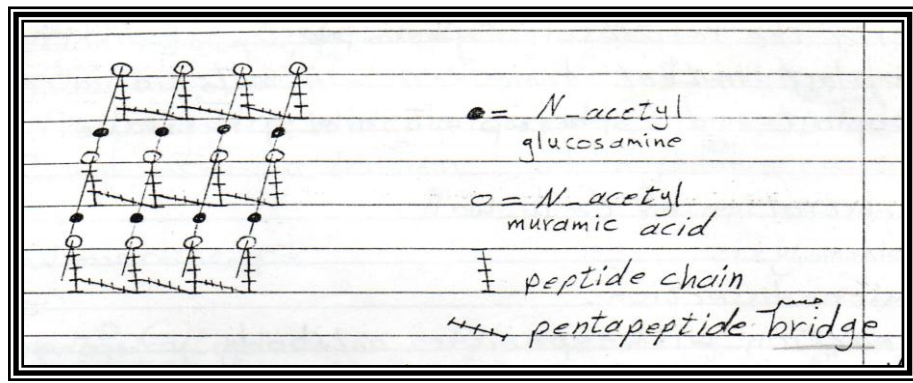 = N acetyl
glucosamine
= N-acetyl
muramic acid
peptide chain
pentapeptide bridge